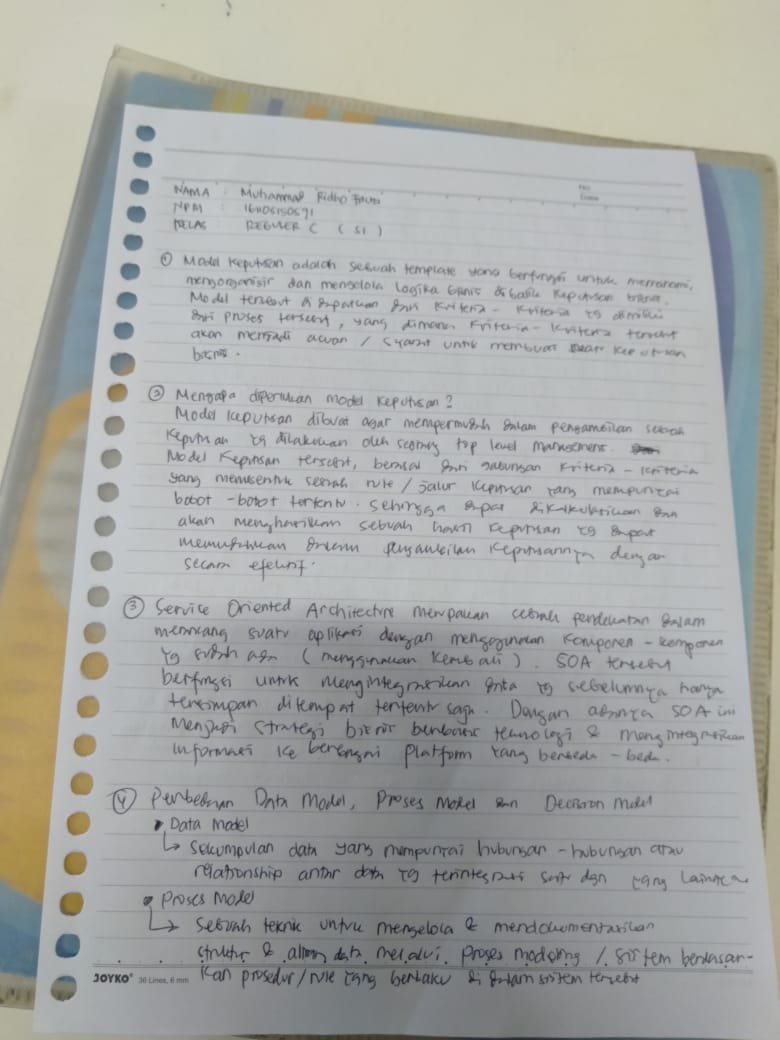 NAMA : Muhammad Ridho Fauzi
NPM :
KELAS : REGULER C ( SI )
① Model Keputusan adalah sebuah template yang berfungsi untuk memahami,
mengorganisir dan mengelola logika bisnis dibalik keputusan bisnis.
Model tersebut didapatkan dari kriteria - kriteria yg dimiliki
dari proses tersebut, yang dimana kriteria - kriteria tersebut
akan menjadi acuan / syarat untuk membuat keputusan
bisnis.
② Mengapa diperlukan model keputusan?
Model keputusan dibuat agar mempermudah dalam pengambilan sebuah
keputusan yg dilakukan oleh seorang top level management.
Model keputusan tersebut, berasal dari gabungan kriteria - kriteria
yang membentuk sebuah rule / jalur keputusan yang mempunyai
bobot - bobot tertentu. Sehingga dapat dikalkulasikan dan
akan menghasilkan sebuah hasil keputusan yg dapat
memudahkan dalam pengambilan keputusannya dengan
secara efektif.
③ Service Oriented Architecture merupakan sebuah pendekatan dalam
merancang suatu aplikasi dengan menggunakan komponen - komponen
yg sudah ada ( menggunakan kembali ). SOA tersebut
berfungsi untuk mengintegrasikan data yg sebelumnya hanya
tersimpan ditempat tertentu saja. Dengan adanya SOA ini
menjadi strategi bisnis berbasis teknologi & mengintegrasikan
informasi ke berbagai platform yang berbeda - beda.
④ Perbedaan Data Model, Proses Model dan Decision Model
• Data Model
↳ Sekumpulan data yang mempunyai hubungan - hubungan atau
relationship antar data yg terintegrasi satu dgn yang lainnya
• Proses Model
↳ Sebuah teknik untuk mengelola & mendokumentasikan
struktur & aliran data melalui proses modeling / sistem berdasar-
kan prosedur/rule yang berlaku di dalam sistem tersebut
JOYKO 36 Lines, 6 mm